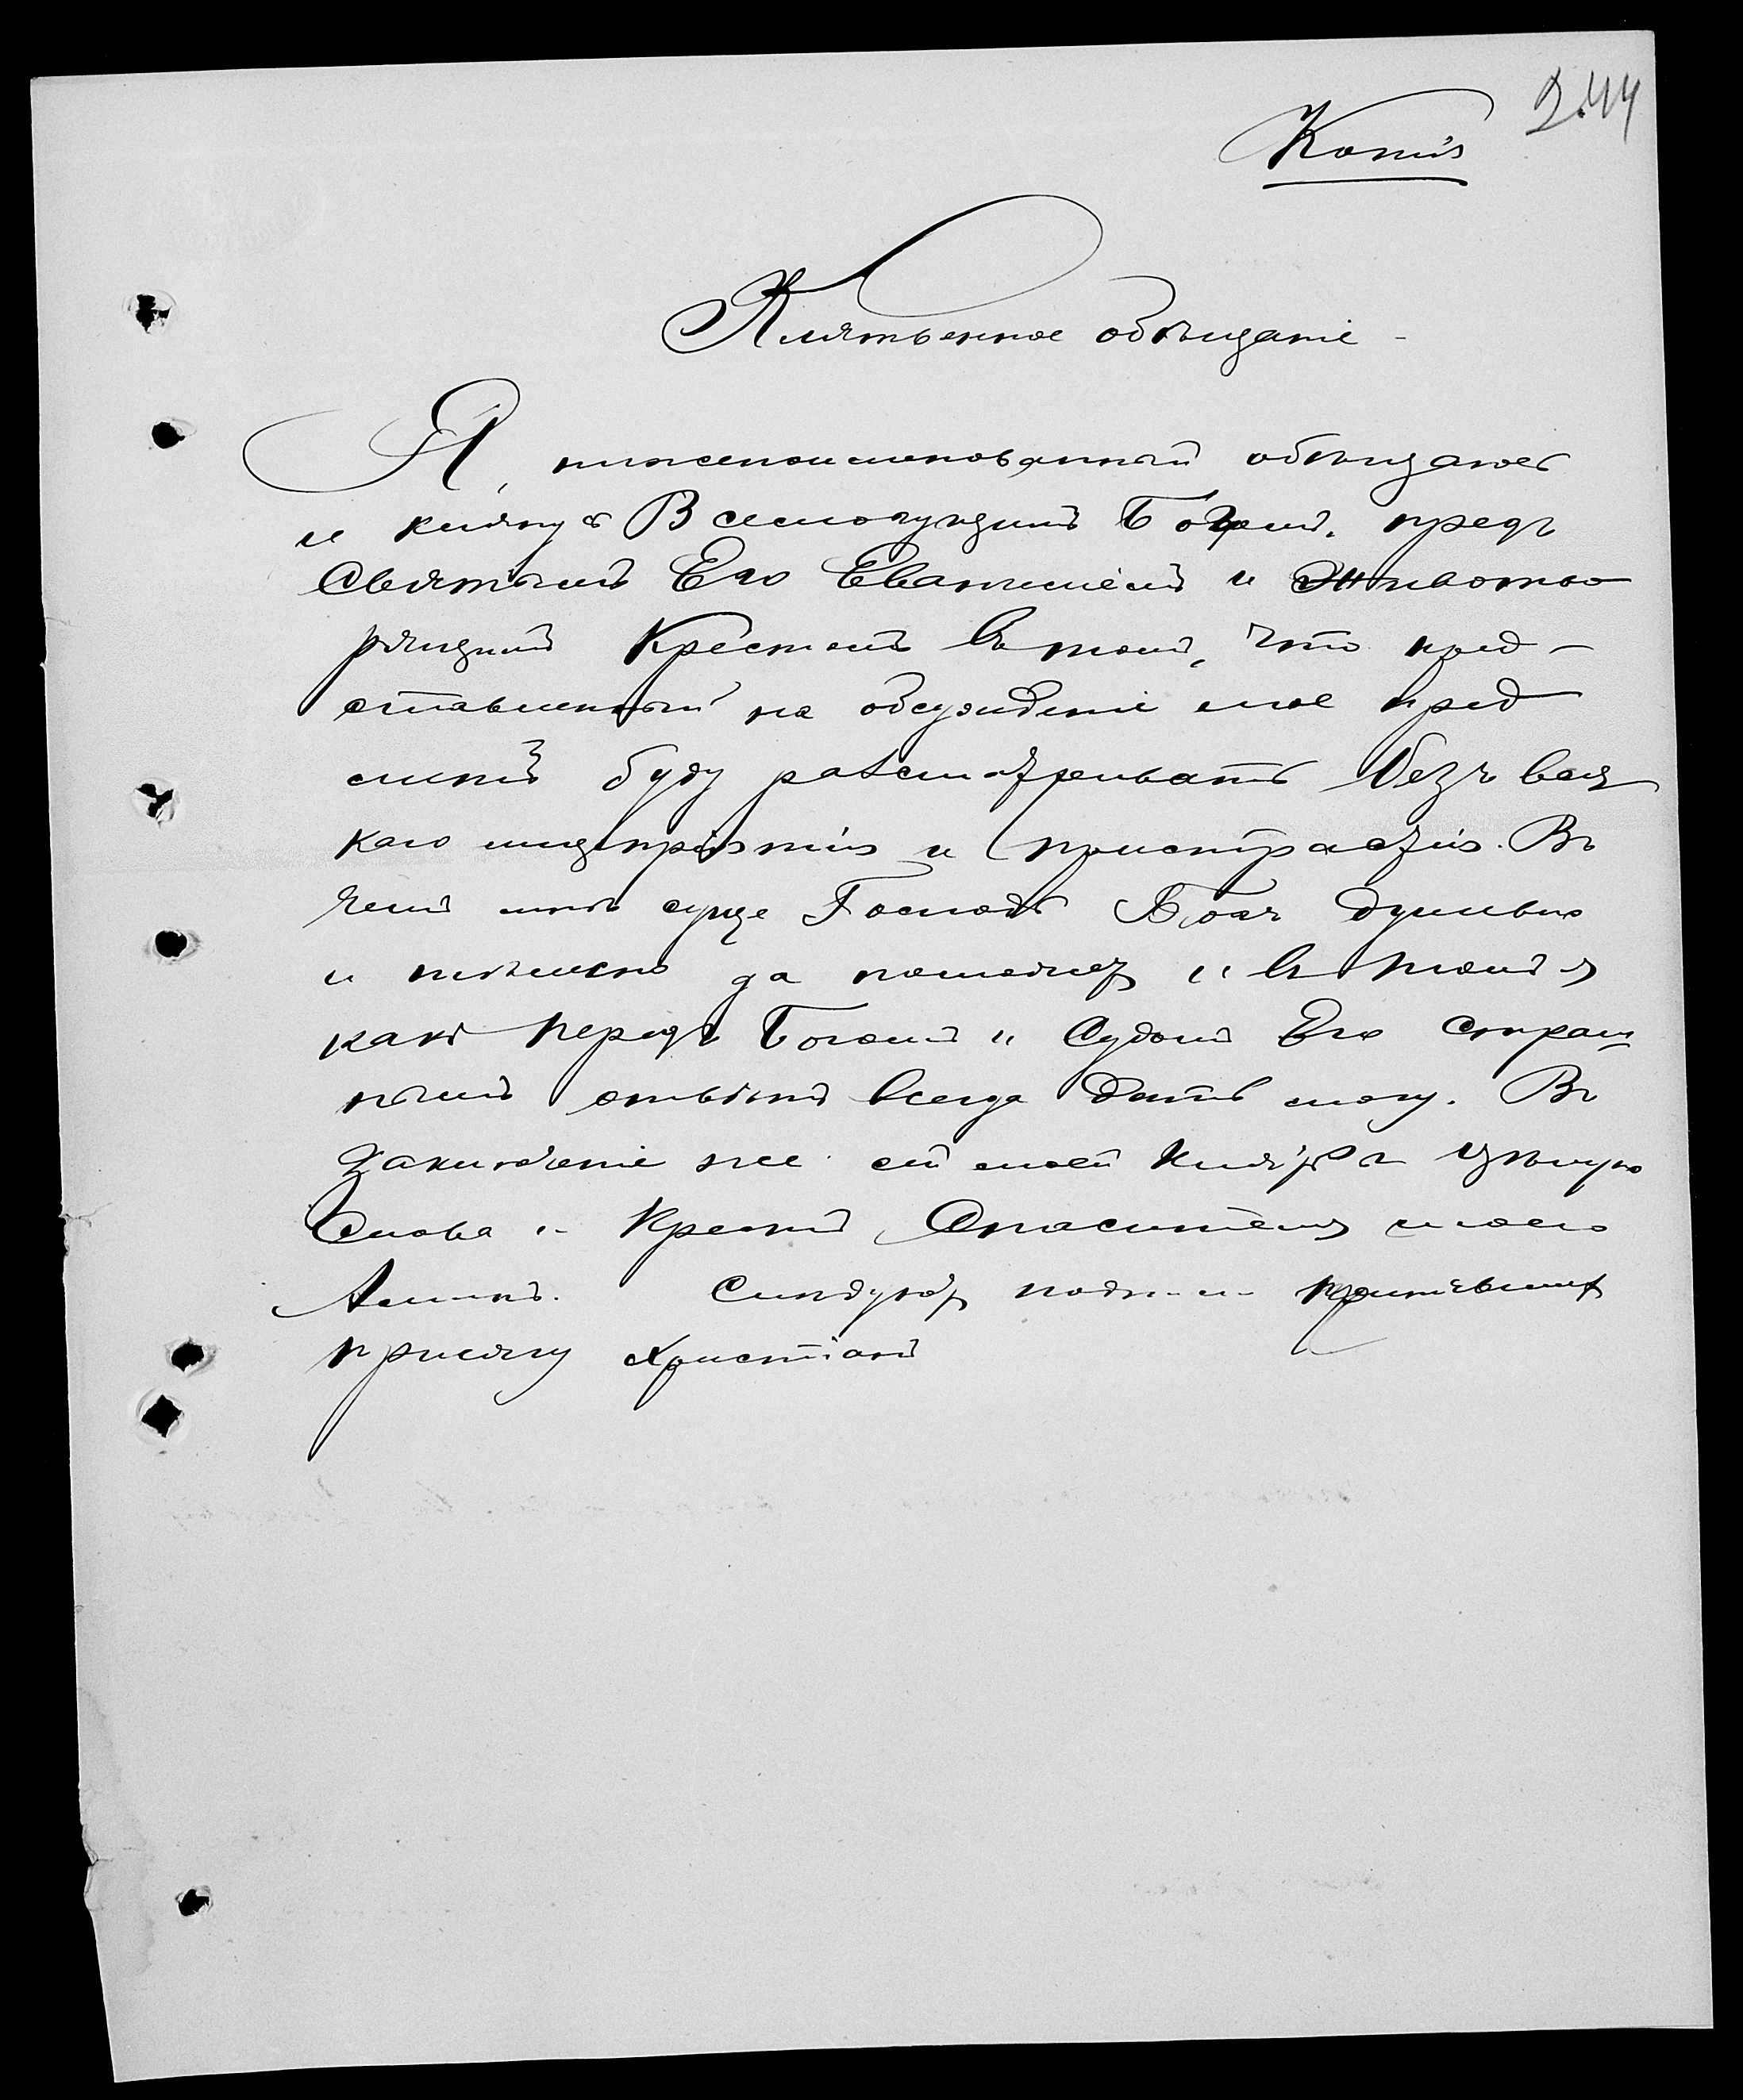 244
Копія
Клятвенное обѣщаніе
Я, нижепоименованный обѣщаюсь
и клянусь Всемогущимъ Богомъ, предъ
Святымъ Его Евангеліемъ и Животво
рящимъ Крестомъ въ томъ, что пред-
ставленный на обсужденіе мое пред
метъ буду разсматривать безъ вся
каго лицепріятія и пристрастія. Въ
чемъ мнѣ суще Господь Богъ душевно
и тѣлесно да поможетъ и въ томъ я
какъ передъ Богомъ и Судомъ Его Страш
нымъ отвѣтъ всегда дать могу. Въ
заключеніе же сей моей клятвы цѣлую
Слова и Крестъ Спасителя моего
Аминь. Слѣдуютъ подписи принявшихъ
присягу христіанъ